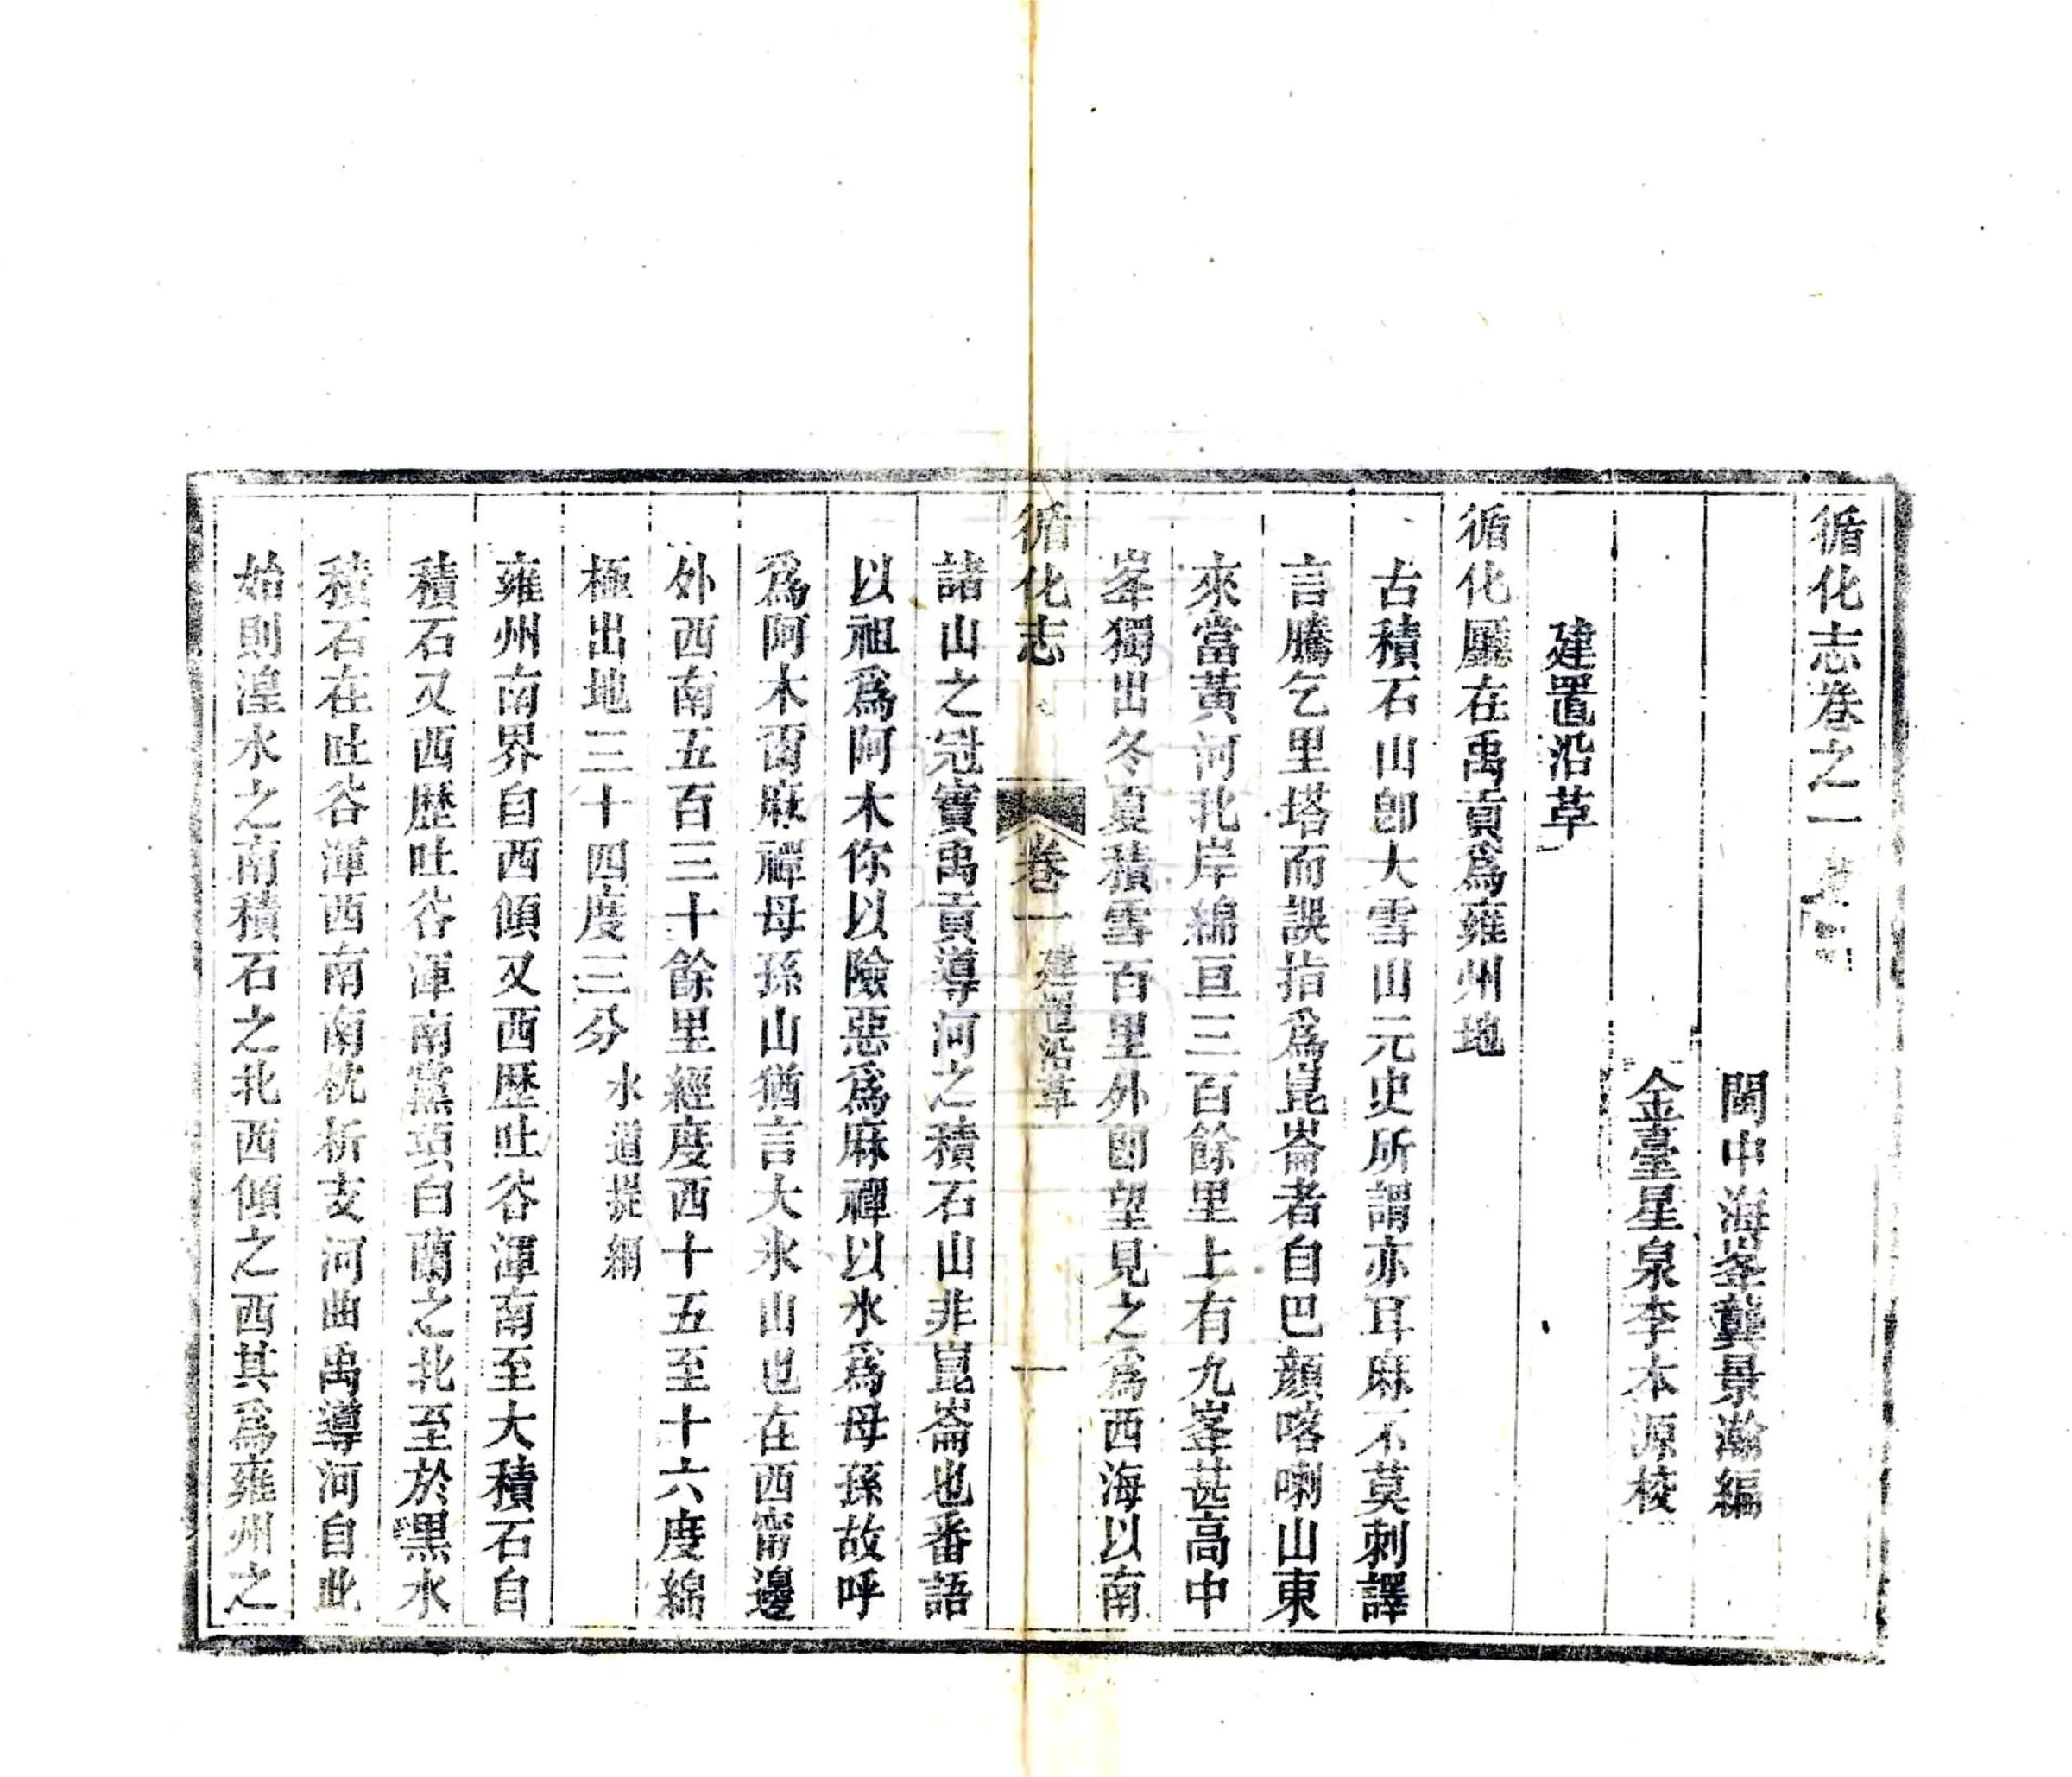 循化志卷之一
閩中海峯龔景瀚編
金臺星泉李本源校
建置沿革
循化廳在禹貢爲雍州地
古積石山卽大雪山元史所謂亦耳麻不莫刺譯
言騰乞里塔而誤指爲崑崙者自巴顔喀喇山東
來當黃河北岸綿亘三百餘里上有九峯甚高中
峯獨出冬夏積雪百里外卽望見之爲西海以南
循化志
卷一
建置沿革
一
諸山之冠實禹貢導河之積石山非崑崙也番語
以祖爲阿木你以險惡爲麻禪以氷爲母孫故呼
爲阿木爾麻禪母孫山猶言大氷山也在西甯邊
外西南五百三十餘里經度西十五至十六度綿
極出地三十四度三分
水道提綱
雍州南界自西傾又西歷吐谷渾南至大積石自
積石又西歷吐谷渾南黨項白蘭之北至於黑水
積石在吐谷渾西南南枕析支河曲禹導河自此
始則湟水之南積石之北西傾之西其爲雍州之